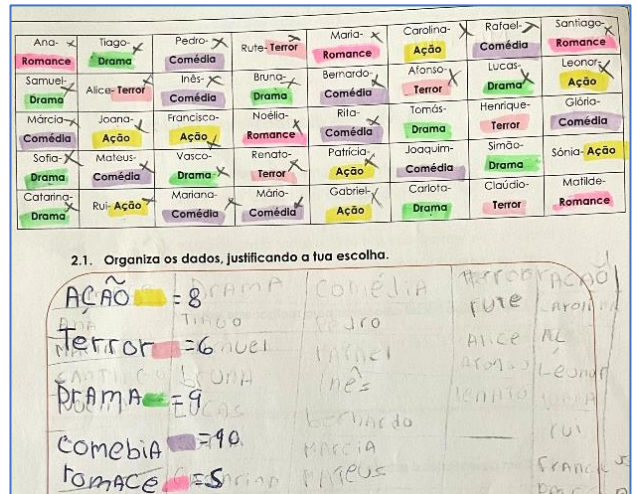 Ana- Romance Tiago- Drama Pedro- Comédia Rute-Terror Maria- Romance Carolina- Ação Rafael- Comédia Santiago- Romance
Samuel- Drama Alice-Terror Inês- Comédia Bruna- Drama Bernardo- Comédia Afonso- Terror Lucas- Drama Leonor- Ação
Márcia- Comédia Joana- Ação Francisco- Ação Noélia- Romance Rita- Comédia Tomás- Drama Henrique- Terror Glória- Comédia
Sofia- Drama Mateus- Comédia Vasco- Drama Renato- Terror Patrícia- Ação Joaquim- Comédia Simão- Drama Sónia-Ação
Catarina- Drama Rui-Ação Mariana- Comédia Mário- Comédia Gabriel- Ação Carlota- Drama Claúdio- Terror Matilde- Romance
2.1. Organiza os dados, justificando a tua escolha.
AÇÃO =8
Terror =6
DRAMA =9
comebia =10
romace =5
DRAMA comédia Terror AÇÃO
Ana Tiago Pedro rute
Alice
Inês Leonor
Bernardo
rui
Márcia
Mateus